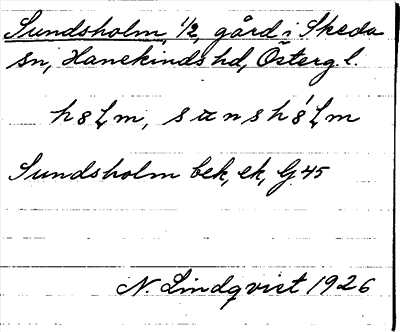 Sundsholm, 1/2, gård i Skeda
sn, Hanekinds hd, Österg. l.
Sundsholm bek, ek, G 45
N. Lindqvist 1926